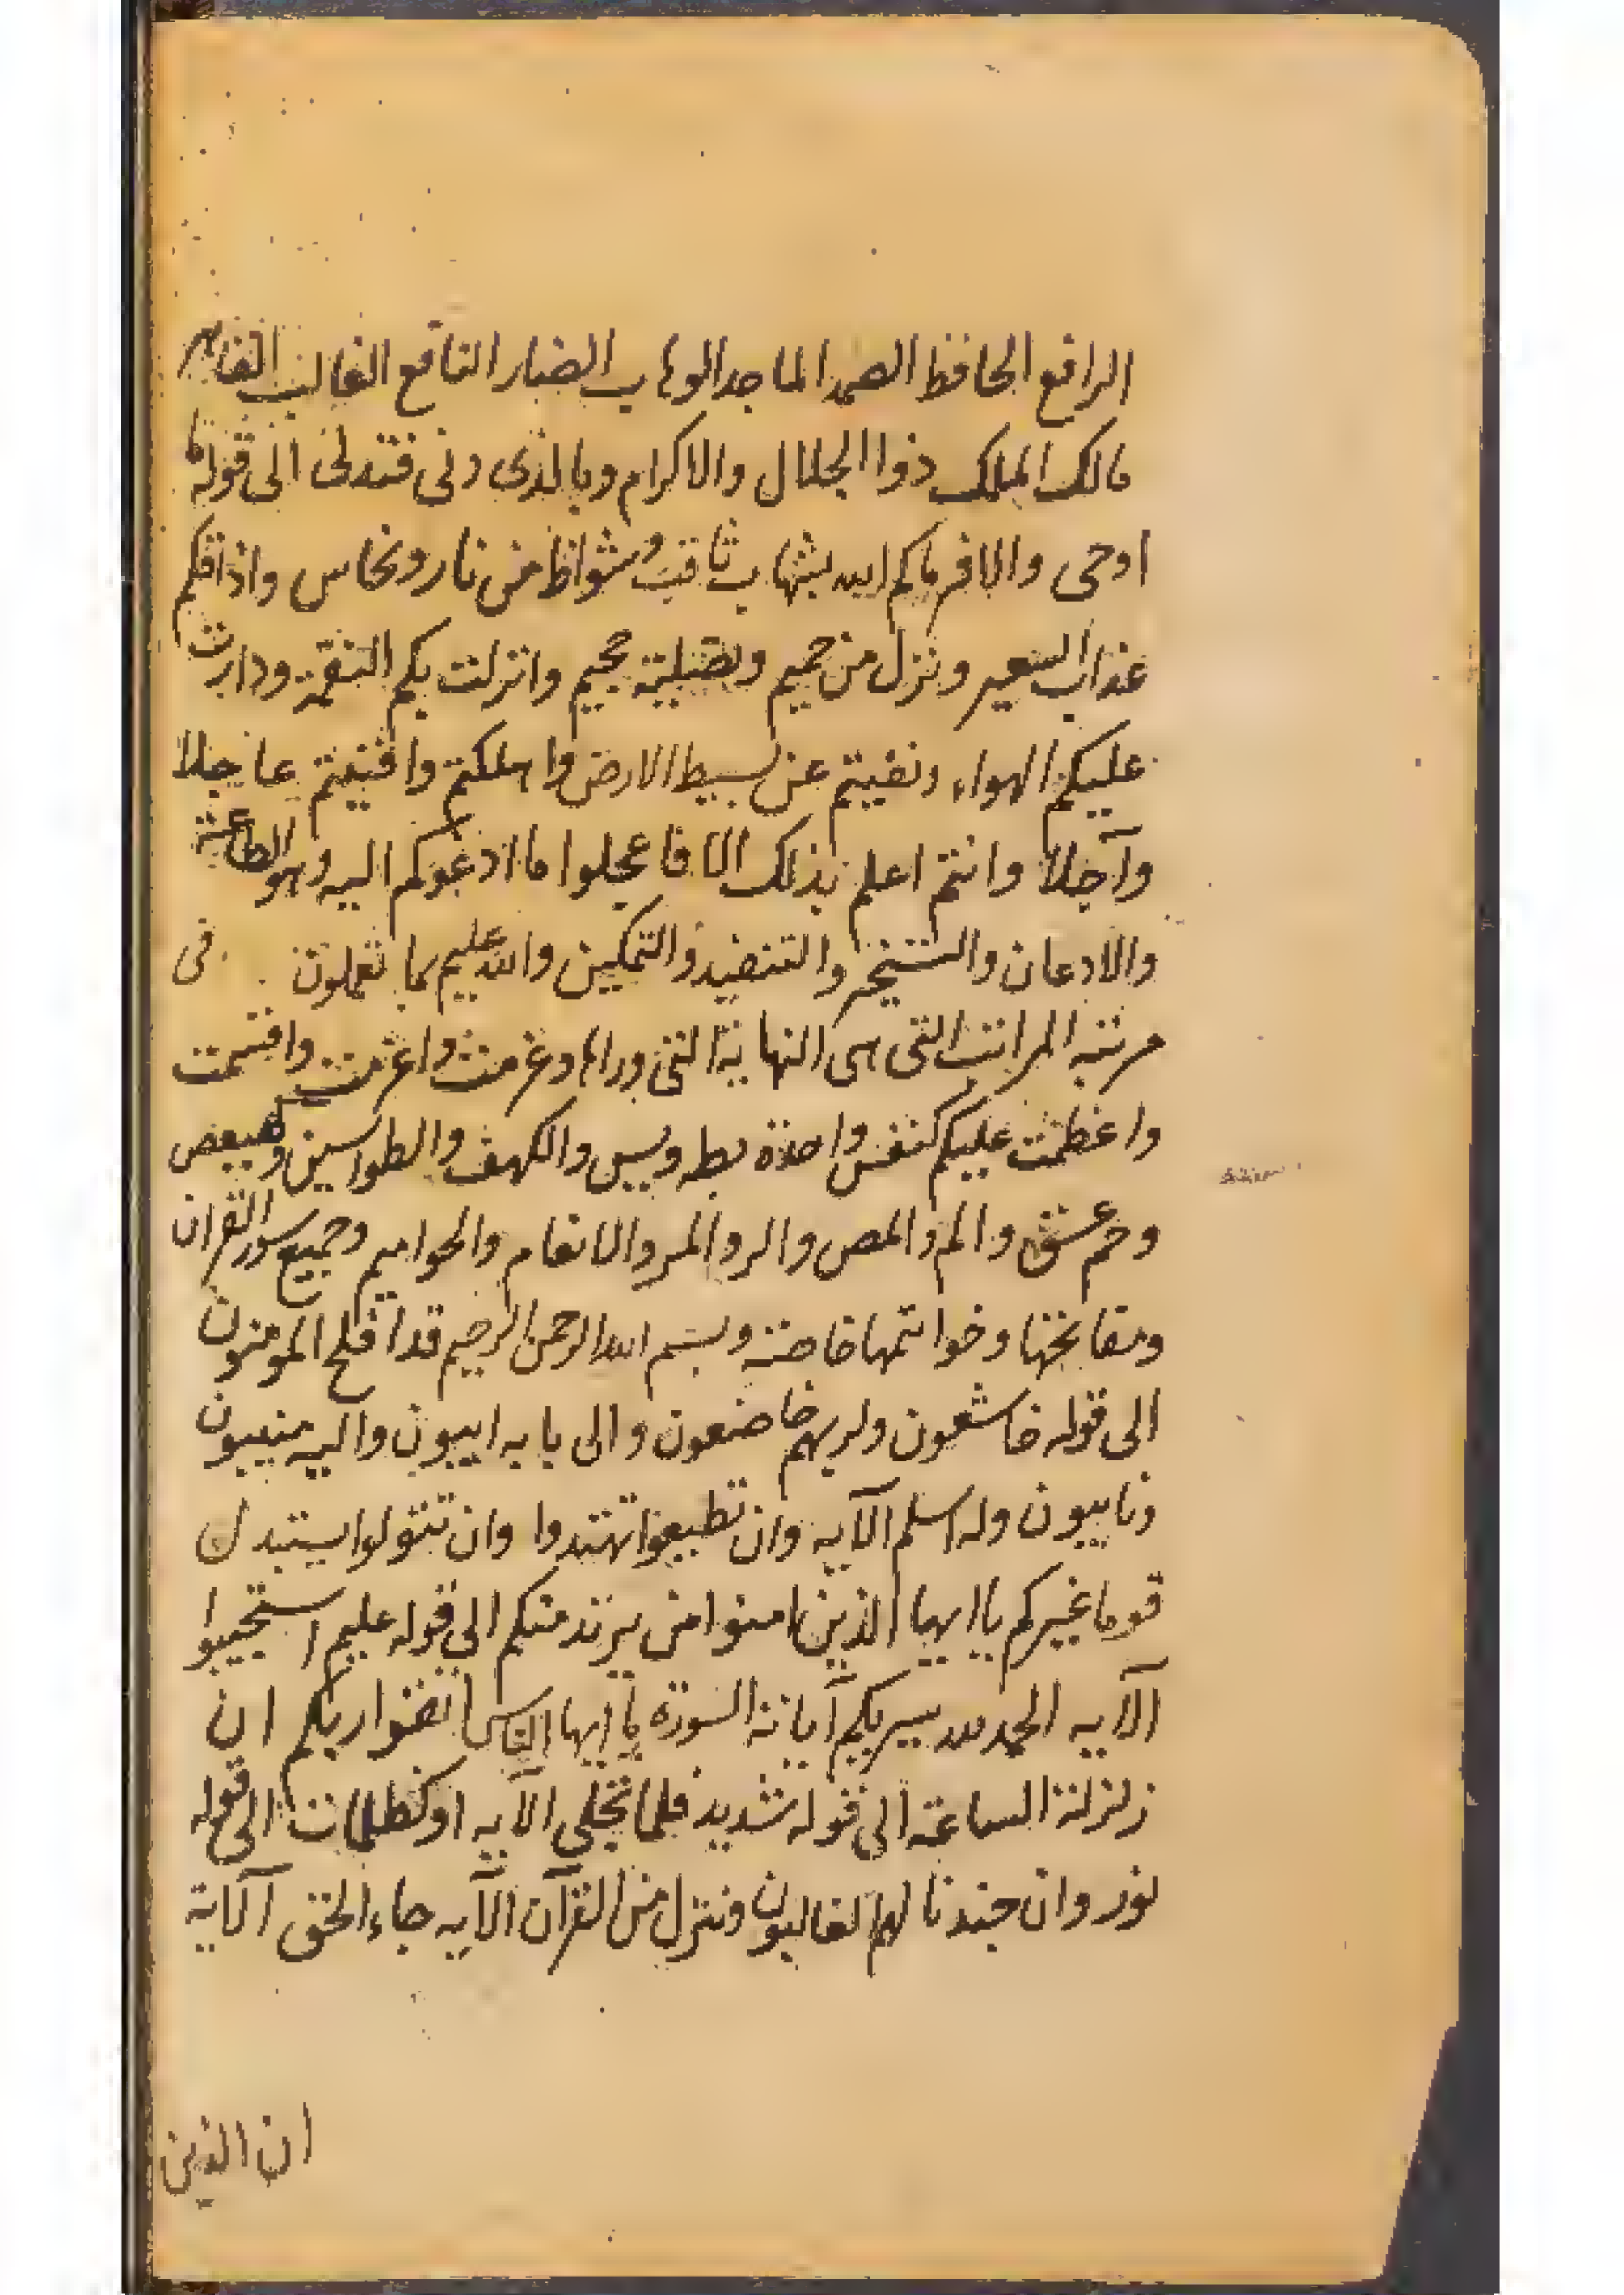 الرافع الحافظ الصمد الماجد الوهاب الضار النافع الغالب القاهر
مالك الملك ذوا الجلال والاكرام وبالذى دنى فتدلى الى قوله ما
اوحى والا فرماكم الله بشهاب ثاقب وشواظ من نار ونحاس واذاقكم
عذاب السعير ونزل من حميم وتصلية جحيم وانزلت بكم النقمة ودارت
عليكم الهواء ونفيتم عن بسيط الارض واهلكتم وافنيتم عاجلا
وآجلا وانتم اعلم بذلك الا فاعجلوا ما ادعوكم اليه وهو الطاعة
والاذعان والتسخير والتنفيذ والتمكين والله عليم بما تعملون فى
مرتبه المراتب التى هى النهاية التى وراها وعزمت واعزمت واقسمت
واعظمت عليكم كنفس واحدة بطه ويس والكهف والطواسين وكهيعص
وحم عسق والم والمص والر والمر والانعام والحواميم وجميع سور القران
ومفاتحها وخواتمها خاصة وبسم الله الرحمن الرحيم قد افلح المومنون
الى قوله خاشعون ولربهم خاضعون والى بابه ايبون واليه منيبون
وتاييبون وله اسلم الآيه وان تطيعوا تهتدوا وان تتولوا يستبدل
قوما غيركم يا ايها الذين امنوا من يرتد منكم الى قوله عليم استجيبوا
الآيه الحمد لله سيريكم آياته السورة يا ايها الناس اتقوا ربكم ان
زلزلة الساعة الى قوله شديد فلما تجلى الآيه او كظلمات الى قوله
نور وان جندنا لهم الغالبون وننزل من القرآن الآيه جاء الحق الآية
ان الذين